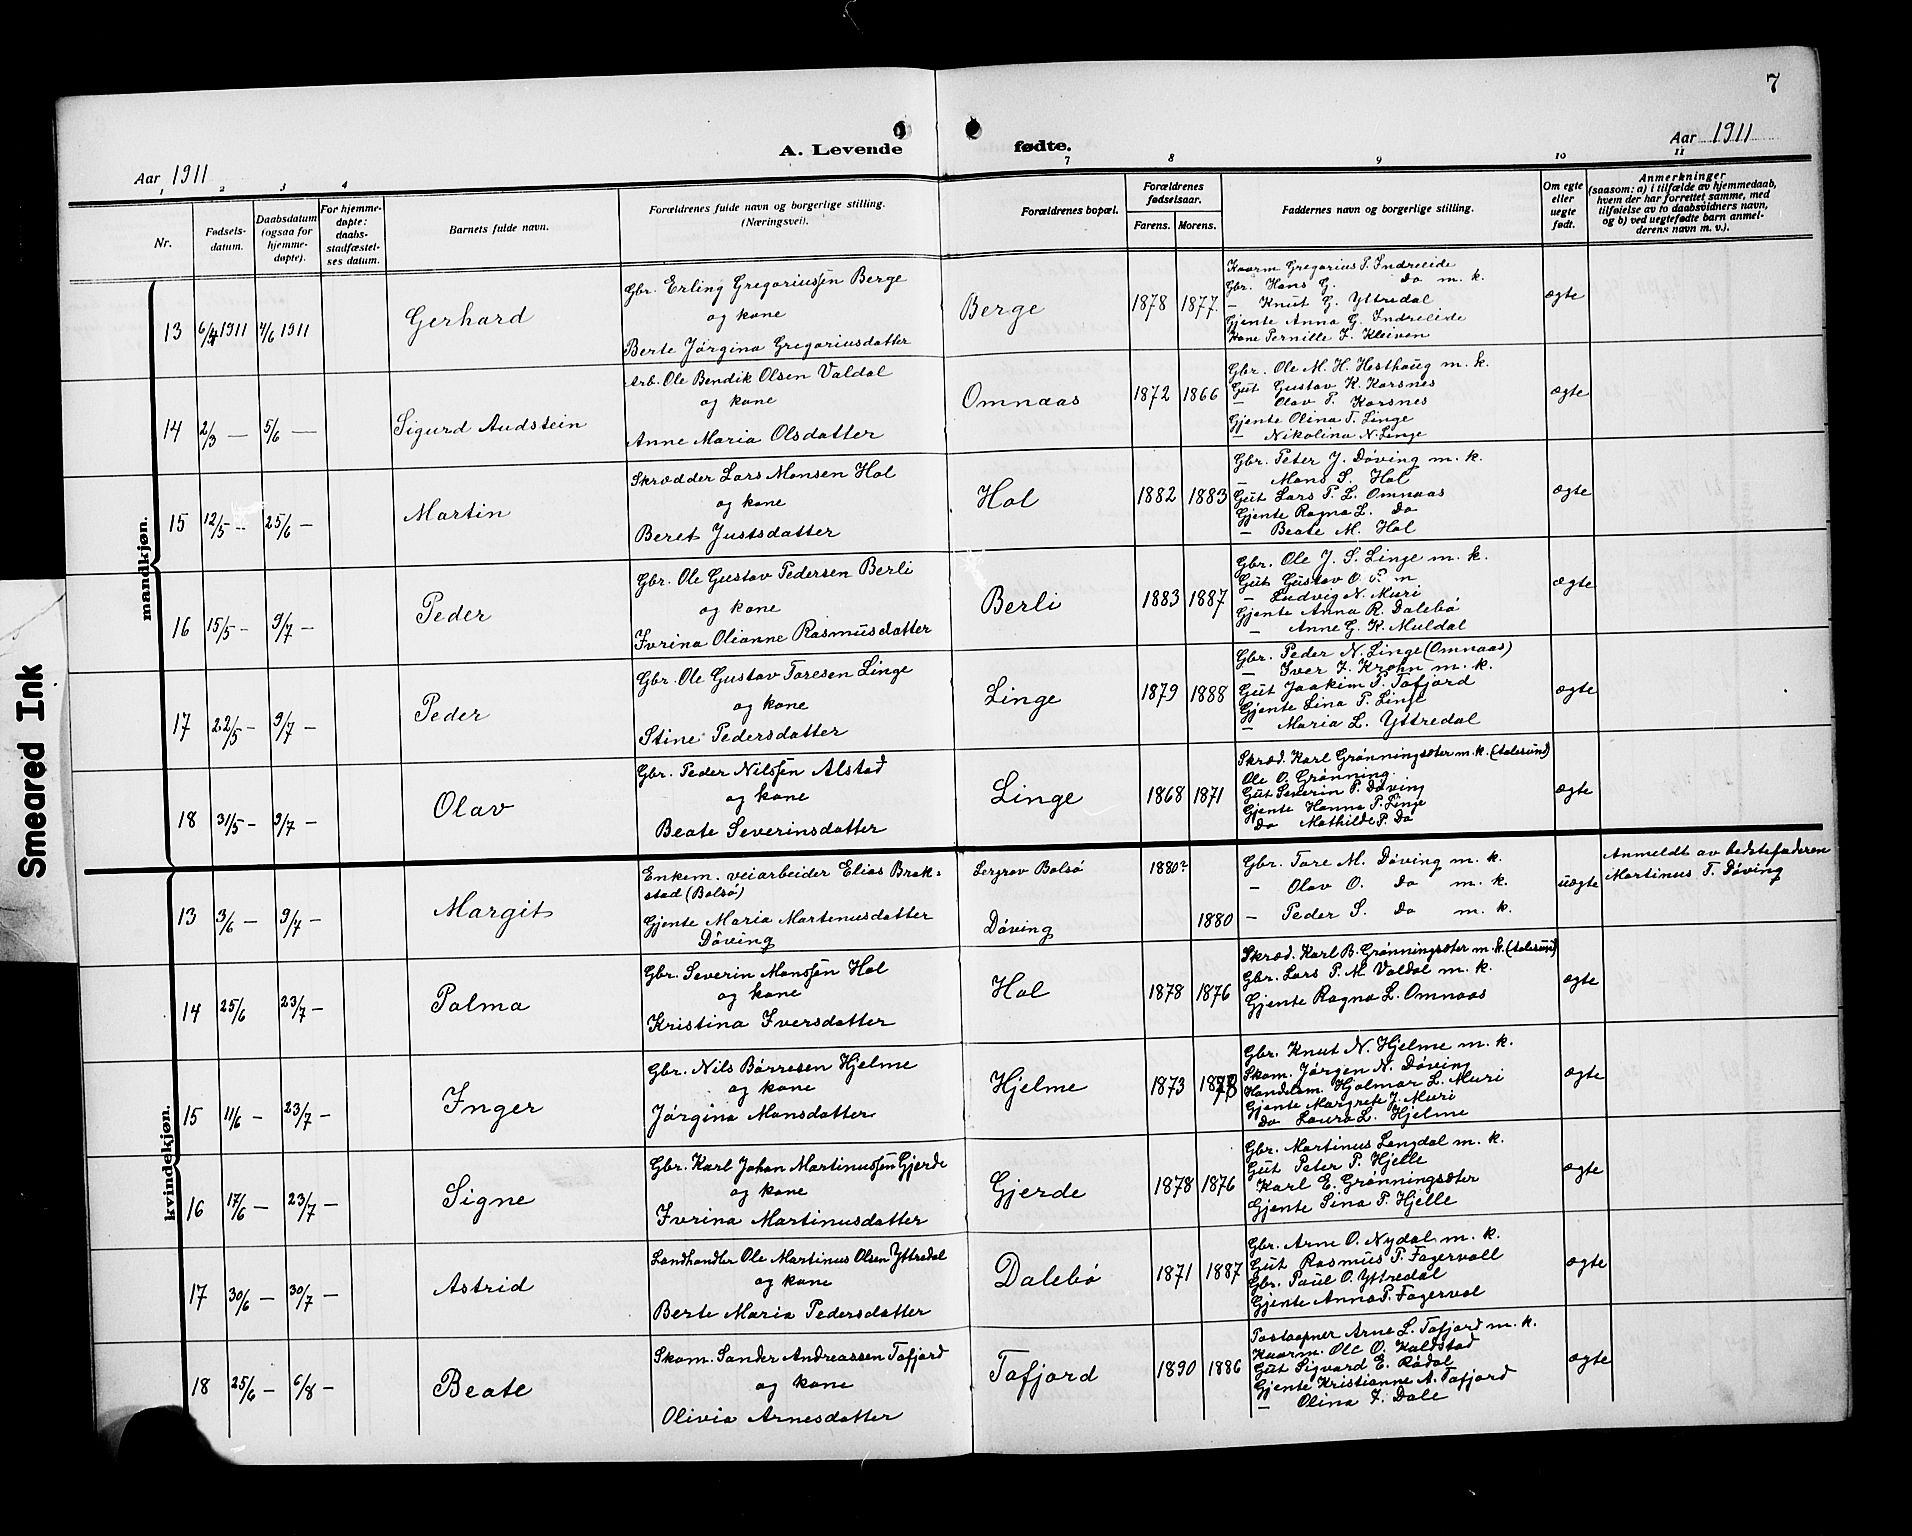 7
A. Levende fødte.
Aar 1911
Aar 1911
1 2 3 4 7 8 9 10 11
Nr.
Fødsels-
datum.
Daabsdatum
(ogsaa for
hjemme-
døpte).
For hjemme-
døpte:
daabs-
stadfæstel-
ses datum.
Barnets fulde navn.
Forældrenes fulde navn og borgerlige stilling.
(Næringsvei).
Forældrenes bopæl.
Forældrenes
fødselsaar.
Farens. Morens.
Faddernes navn og borgerlige stilling.
Om egte
eller
uegte
født.
Anmerkninger
(saasom: a) i tilfælde av hjemmedaab,
hvem der har forrettet samme, med
tilføielse av to daabsvidners navn,
og b) ved uegtefødte barn anmel-
derens navn m. v.).
mandkjøn.
13 6/4 1911 4/6 1911 Gerhard
Gbr. Erling Gregoriussen Berge
og kone
Berte Jørgina Gregoriusdatter
Berge 1878 1877.
Kaarm Gregorius P. Indreeide
Gbr. Hans G. Do m. k.
— Knut G. Yttredal
Gjente Anna G. Indreeide
Kone Pernille I. Kleiven
ægte
14 2/3 — 5/6 — Sigurd Audstein
Arb. Ole Bendik Olsen Valdal
og kone
Anne Maria Olsdatter
Omnaas 1872 1866
Gbr. Ole M. H. Hesthaug m. k.
Gut Gustav K. Korsnes
— Olav P. Korsnes
Gjente Olina T. Linge
— Nikolina N. Linge
ægte
15 12/5 — 25/6 — Martin
Skrædder Lars Monsen Hol
og kone
Beret Justsdatter
Hol 1882 1883
Gbr. Peter J. Døving m. k.
— Mons S. Hol
Gut Lars P. L. Omnaas
Gjente Ragna L. Do
— Beate M. Hol
ægte
16 15/5 — 9/7 — Peder
Gbr. Ole Gustav Pedersen Berli
og kone
Ivrina Olianne Rasmusdatter
Berli 1883 1887
Gbr. Ole J. S. Linge m. k.
Gut Gustav O. P. m
— Ludvig N. Muri
Gjente Anna R. Dalebø
— Anne G. K. Muldal
ægte
17 22/5 — 9/7 — Peder
Gbr. Ole Gustav Toresen Linge
og kone
Stine Pedersdatter
Linge 1879 1888
Gbr. Peder N. Linge (Omnaas)
— Iver I. Krohn m. k.
Gut Joakim P. Tafjord
Gjente Lina P. Linge
— Maria L. Yttredal
ægte
18 31/5 — 9/7 — Olav
Gbr. Peder Nilssen Alstad
og kone
Beate Severinsdatter
Linge 1868 1871
Skræd. Karl Grønningsæter m. k. (Aalesund)
Ole O. Grønning.
Gut Severin P. Døving
Gjente Hanna P. Linge
Do Mathilde P. Do
ægte
kvindekjøn.
13 3/6 — 9/7 — Margit
Enkem. veiarbeider Elias Brak-
stad (Bolsø)
Gjente Maria Martinusdatter
Døving
Lergrov Bolsø 1880?
Døving 1880
Gbr. Tore M. Døving m. k.
— Olav O. Do m. k.
— Peder S. Do m. k.
uægte
Anmeldt av bedstefaderen
Martinus T. Døving
14 25/6 23/7 — Palma
Gbr. Severin Monssen Hol
og kone
Kristina Iversdatter
Hol 1878 1876
Skræd. Karl B. Grønningsæter m. k. (Aalesund)
Gbr. Lars P. M. Valdal m. k.
Gjente Ragna L. Omnaas
ægte
15 11/6 — 23/7 — Inger
Gbr. Nils Børresen Hjelme
og kone
Jørgina Monsdatter
Hjelme 1873 1873
Gbr. Knut N. Hjelme m. k.
Skom. Jørgen N. Døving
Handelsm. Hjalmar L. Muri
Gjente Margrete J. Muri
Do Laura L. Hjelme
ægte
16 17/6 — 23/7 — Signe
Gbr. Karl Johan Martinussen Gjerde
og kone
Ivrina Martinusdatter
Gjerde 1878 1876
Gbr. Martinus Langdal m. k.
Gut Peter P. Hjelle
Karl E. Grønningsæter
Gjente Sina P. Hjelle
ægte
17 30/6 — 30/7 — Astrid
Landhandler Ole Martinus Olsen Yttredal
og kone
Berte Maria Pedersdatter
Dalebø 1871 1887
Gbr. Arne O. Nydal m. k.
Gut Rasmus P. Fagervoll
Gbr. Paul O. Yttredal
Gjente Anna P. Fagervol
ægte
18 25/6 — 6/8 — Beate
Skom. Sander Andreassen Tafjord
og kone
Olivia Arnesdatter
Tafjord 1890 1886
Postaapner Arne L. Tafjord m. k.
Kaarm. Ole O. Kaldstad
Gut Sigvard E. Rødal
Gjente Kristianne A. Tafjord
— Olina I. Dale
ægte
Smeared Ink